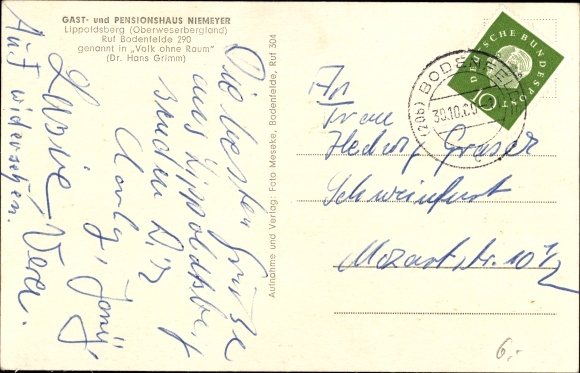 GAST- und PENSIONSHAUS NIEMEYER
Lippoldsberg (Oberweserbergland)
Ruf Bodenfelde 290
genannt in „Volk ohne Raum"
(Dr. Hans Grimm)
Die besten Grüße
aus Lippoldsberg
senden Dir
Lassie Vera.
Auf wiedersehen.
Aufnahme und Verlag: Foto Meseke, Bodenfelde, Ruf 304
DEUTSCHE BUNDESPOST
10
(20b) BODENFELDE
30.10.60
An
Frau
Hedwig Graser
Schweinfurt
Mozartstr. 10 1/2
6.-